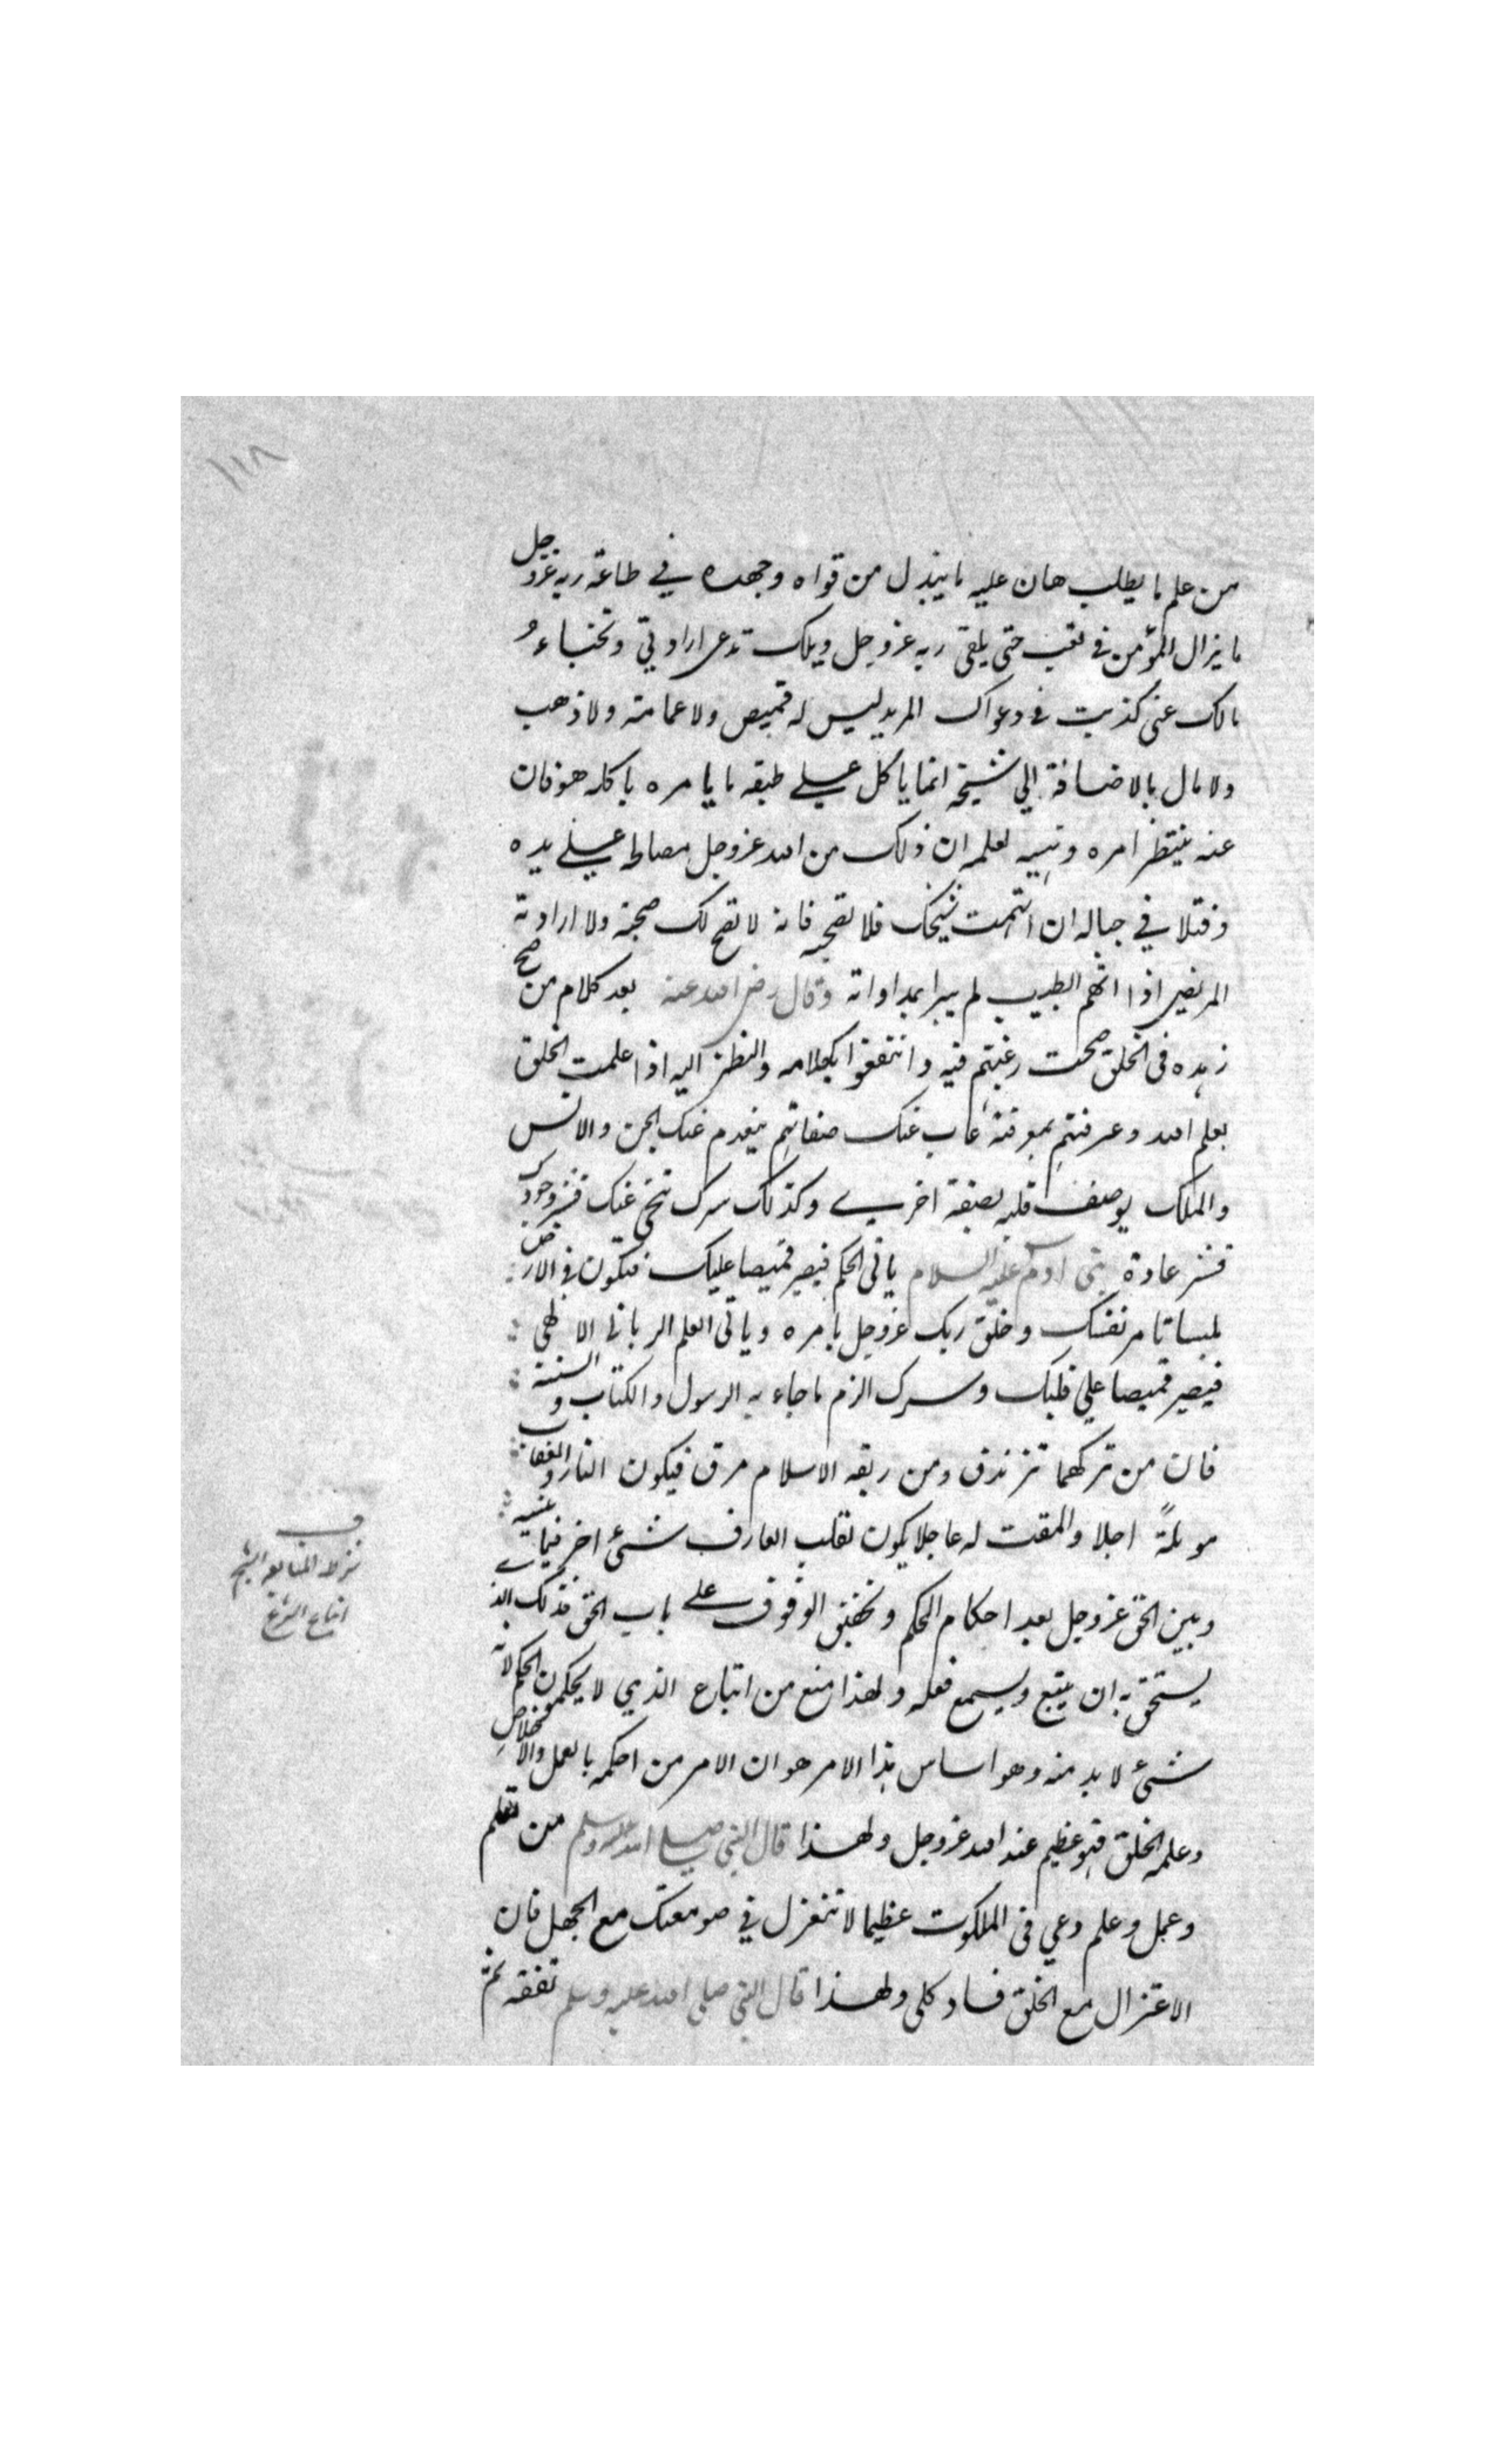 ١١٨
من علم ما يطلب هان عليه ما يبذل من قواه وجهده في طاعة ربه عزوجل
ما يزال المؤمن في تعب حتى يلقى ربه عزوجل ويلك تدعى ارادتي وتخباء
مالك عنى كذبت في دعواك المريد ليس له قميص ولا عمامة ولا ذهب
ولا مال بالاضافة الي شيخه انما ياكل علي طبقه ما يامره باكله هو فان
عنه ينتظر امره ونهيه لعلمه ان ذلك من الله عزوجل مصالحه علي يده
وفتلا في حباله ان اتهمت شيخك فلا تصحبه فانه لا تصح لك صحبته ولا ارادته
المريض اذا اتهم الطبيب لم يبرا بمداواته وقال رضى الله عنه بعد كلام من صح
زهده في الخلق صحت رغبتهم فيه وانتفعوا بكلامه والنظر اليه اذا علمت الخلق
بعلم الله وعرفتهم بمعرفته غاب عنك صفاتهم ينعدم عنك الجن والانس
والملك يوصف قلبه بصفة اخري وكذلك سرك تنحى عنك قشر وجودك
قشر عادة بنى ادم عليه السلام ياتى الحكم فيصير قميصا عليك فتكون في الارض
ملبسا تامر نفسك وخلق ربك عزوجل بامره وياتى العلم الرباني الالهي
فيصير قميصا علي قلبك وسرك الزم ما جاء به الرسول والكتاب والسنة
فان من تركهما تزندق ومن ربقه الاسلام مرق فيكون النار والعقاب
موئلهً اجلا والمقت له عاجلا يكون لقلب العارف شئ اخر فيما بينه
وبين الحق عزوجل بعد احكام الحكم وتحقيق الوقوف علي باب الحق فذلك الذي
يستحق به ان يتبع ويسمع فعله ولهذا منع من اتباع الذي لا يحكمون الحكم لانه
شئ لا بد منه وهو اساس هذا الامر هو ان الامر من احكمه بالعمل والاخلاص
وعلمه الخلق فهو عظيم عند الله عزوجل ولهذا قال النبى صلي الله عليه وسلم من تعلم
وعمل وعلم دعي في الملكوت عظيما لا تنعزل في صومعتك مع الجهل فان
الاعتزال مع الخلق فساد كلى ولهذا قال النبى صلى الله عليه وسلم تفقه ثم
ف
اتباع الشرع